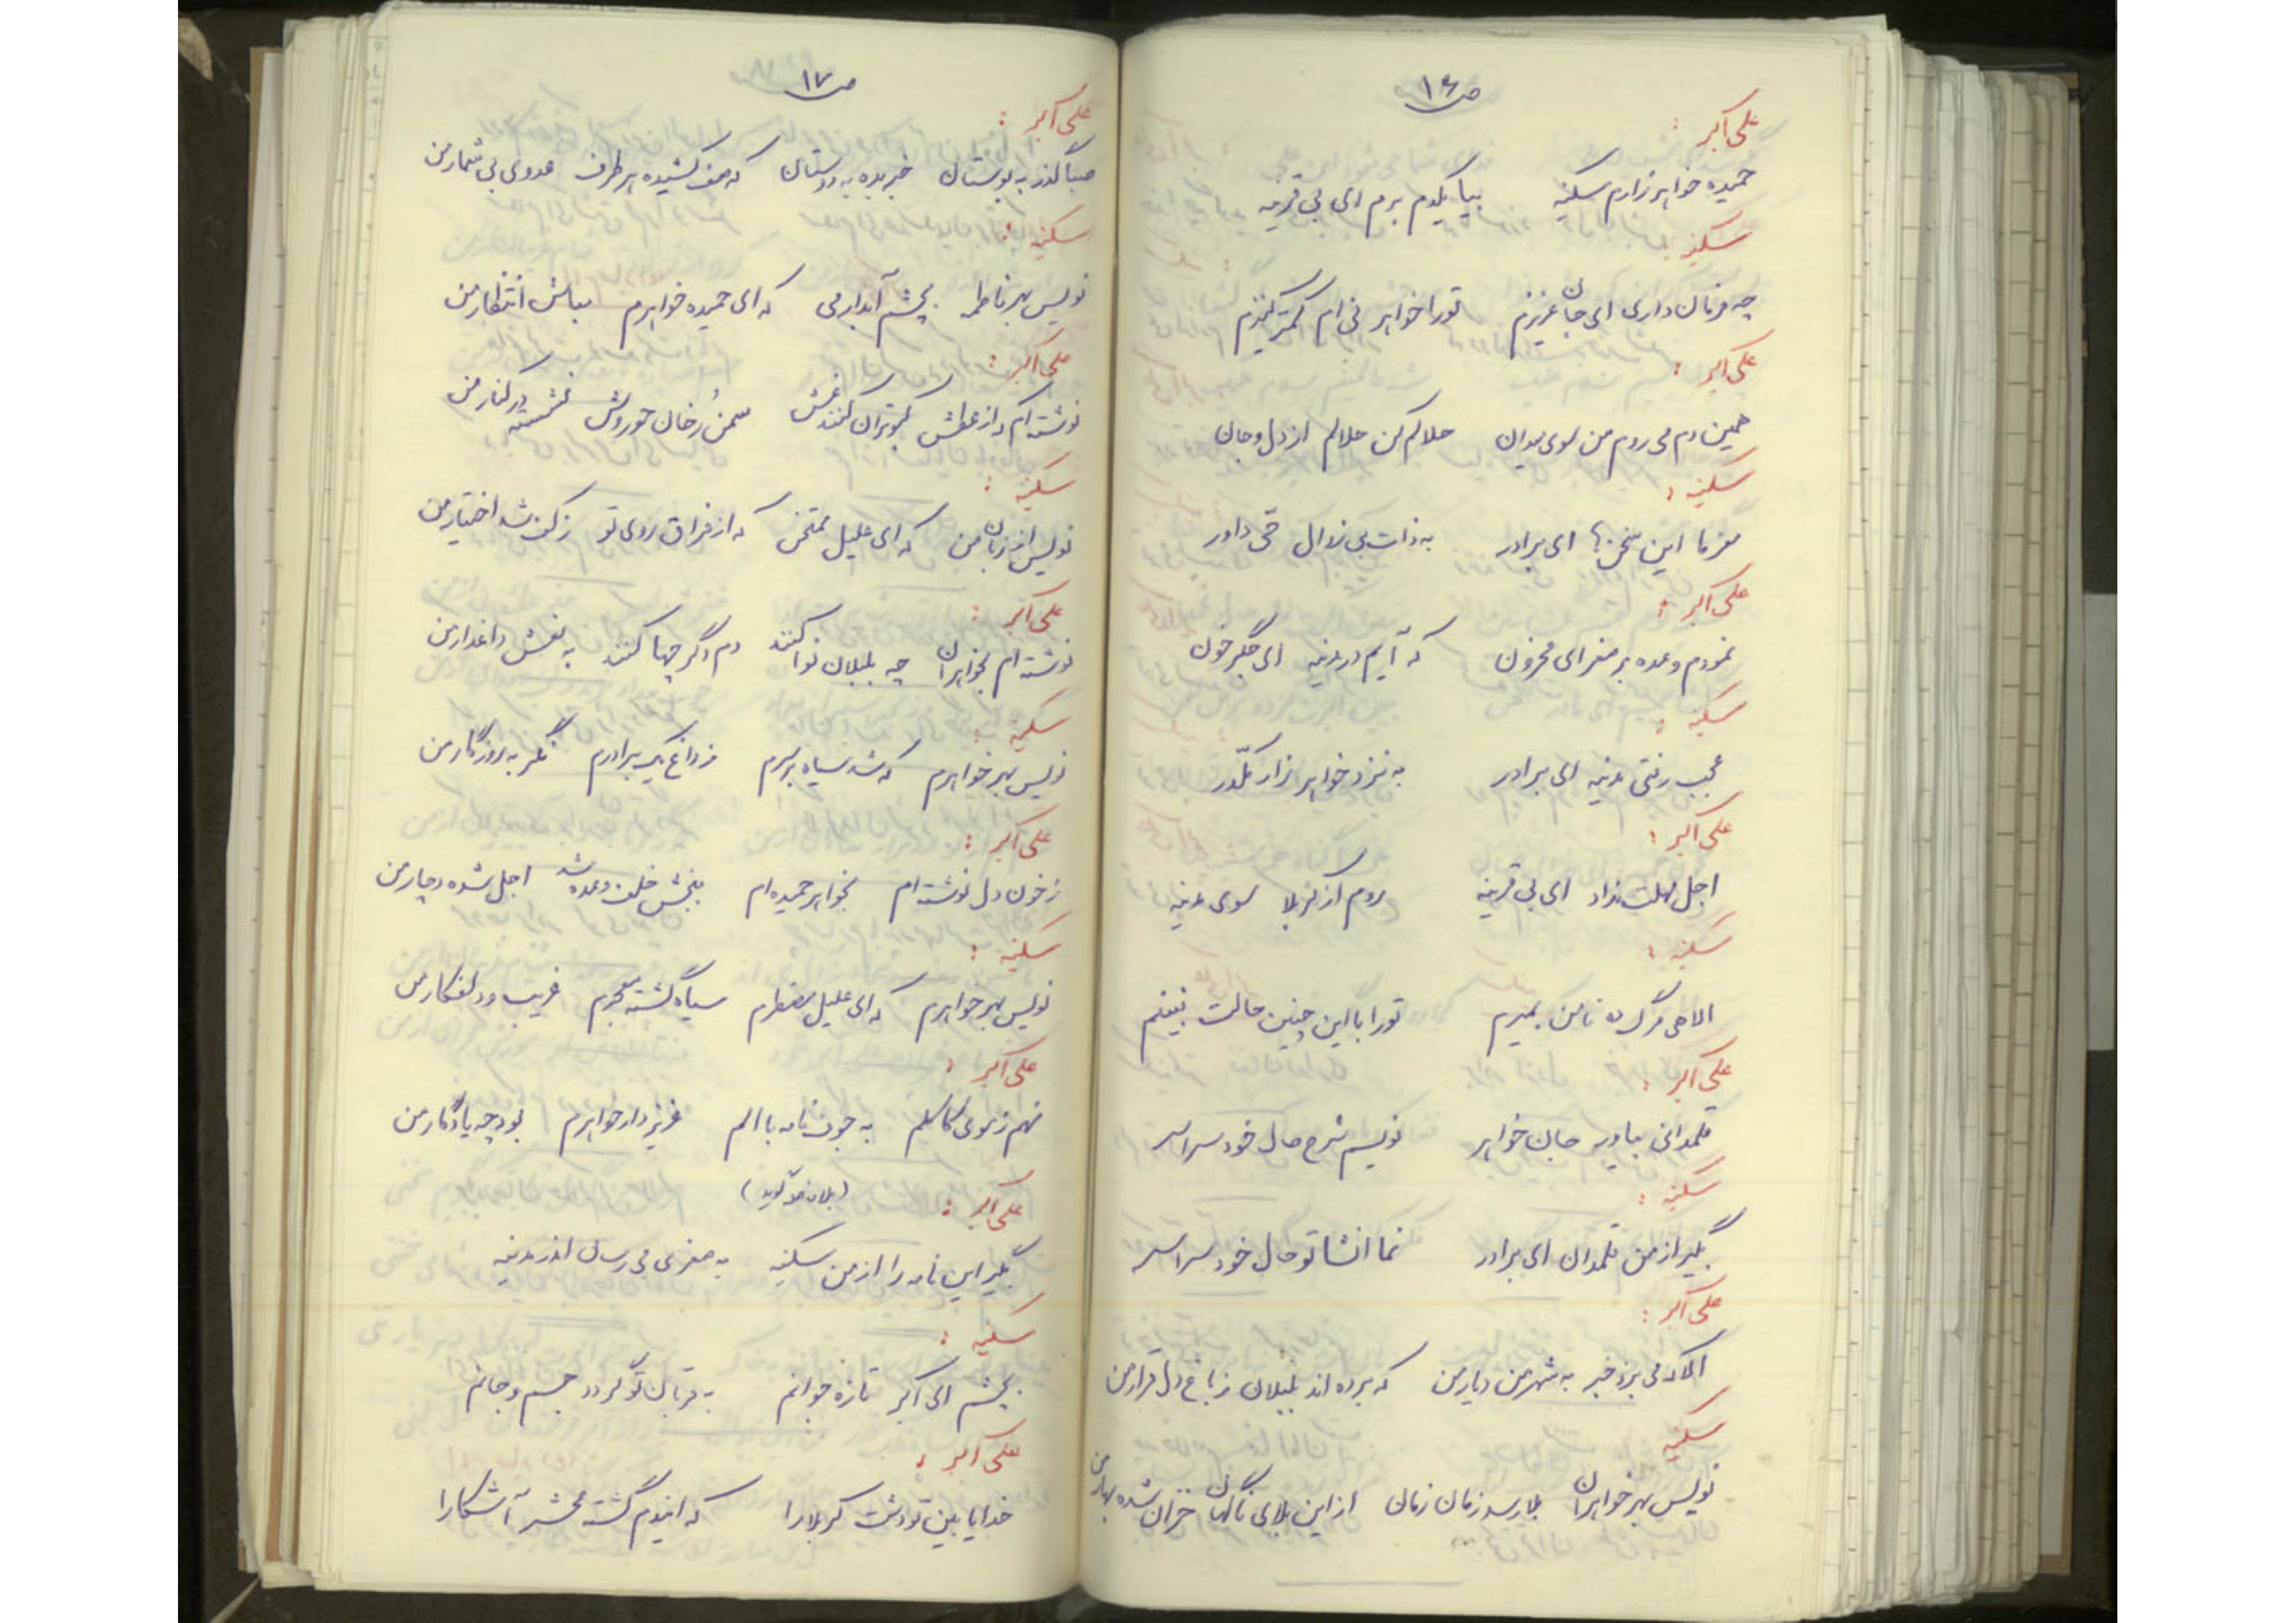 ص ۱۶
علی اکبر :
حمیده خواهر زارم سکینه بیا یکدم برم ای بی قرینه
سکینه :
چه فرمان داری ای جان عزیزم تو را خواهر نی ام کمتر کنیزم
علی اکبر :
همین دم می روم من سوی میدان حلالم کن حلالم از دل و جان
سکینه :
مفرما این سخن ها ای برادر به ذات بی زوال حی داور
علی اکبر :
نمودم وعده بر صغرای محزون که آیم در مدینه ای جگر خون
سکینه :
عجب رفتی مدینه ای برادر به نزد خواهر زار مکدّر
علی اکبر :
اجل مهلت نداد ای بی قرینه روم از کربلا سوی مدینه
سکینه :
الاهی مرگ ده تا من بمیرم تو را با این چنین حالت نبینم
علی اکبر :
قلمدانی بیاور جان خواهر نویسم شرح حال خود سراسر
سکینه :
بگیر از من قلمدان ای برادر نما انشا تو حال خود سراسر
علی اکبر :
الا که می برد خبر به شهر من دیار من که برده اند بلبلان ز باغ دل قرار من
سکینه
نویس بهر خواهران بلا رسد زمان زمان از این بلای ناگهان خزان شده بهار من
ص ۱۷
علی اکبر :
صبا گذر به بوستان خبر بده به دوستان که صف کشیده هر طرف عدوی بی شمار من
سکینه :
نویس بهر فاطمه بچشم آبدار می که ای حمیده خواهرم مباش انتظار من
علی اکبر :
نوشته ام که از عطش کبوتران کنند غش سمن رُخان حوروش نشسته در کنار من
سکینه :
نویس از زبان من که ای علیل ممتحن که از فراق روی تو ز کف شد اختیار من
علی اکبر :
نوشته ام بخواهران چه بلبلان نوا کنند دم دگر چها کنند به نعش داغدار من
سکینه :
نویس بهر خواهرم که شد سیاه بر سرم ز داغ یک برادرم نگر به روزگار من
علی اکبر :
ز خون دل نوشته ام بخواهر حمیده ام ببخش خلف وعده شد اجل شده دچار من
سکینه :
نویس بهر خواهرم که ای علیل مضطرم سیاه گشته معجرم غریب و دلفکار من
علی اکبر :
نهم ز موی کاکلم به جوف نامه با الم عزیز دار خواهرم بود چه یادگار من
علی اکبر :
بگیر این نامه را از من سکینه به صغری می رسان اندر مدینه
سکینه :
بچشم ای اکبر تازه جوانم به قربان تو گردد جسم و جانم
علی اکبر :
خدایا بین تو دشت کربلا را که ایندم گشته محشر آشکارا